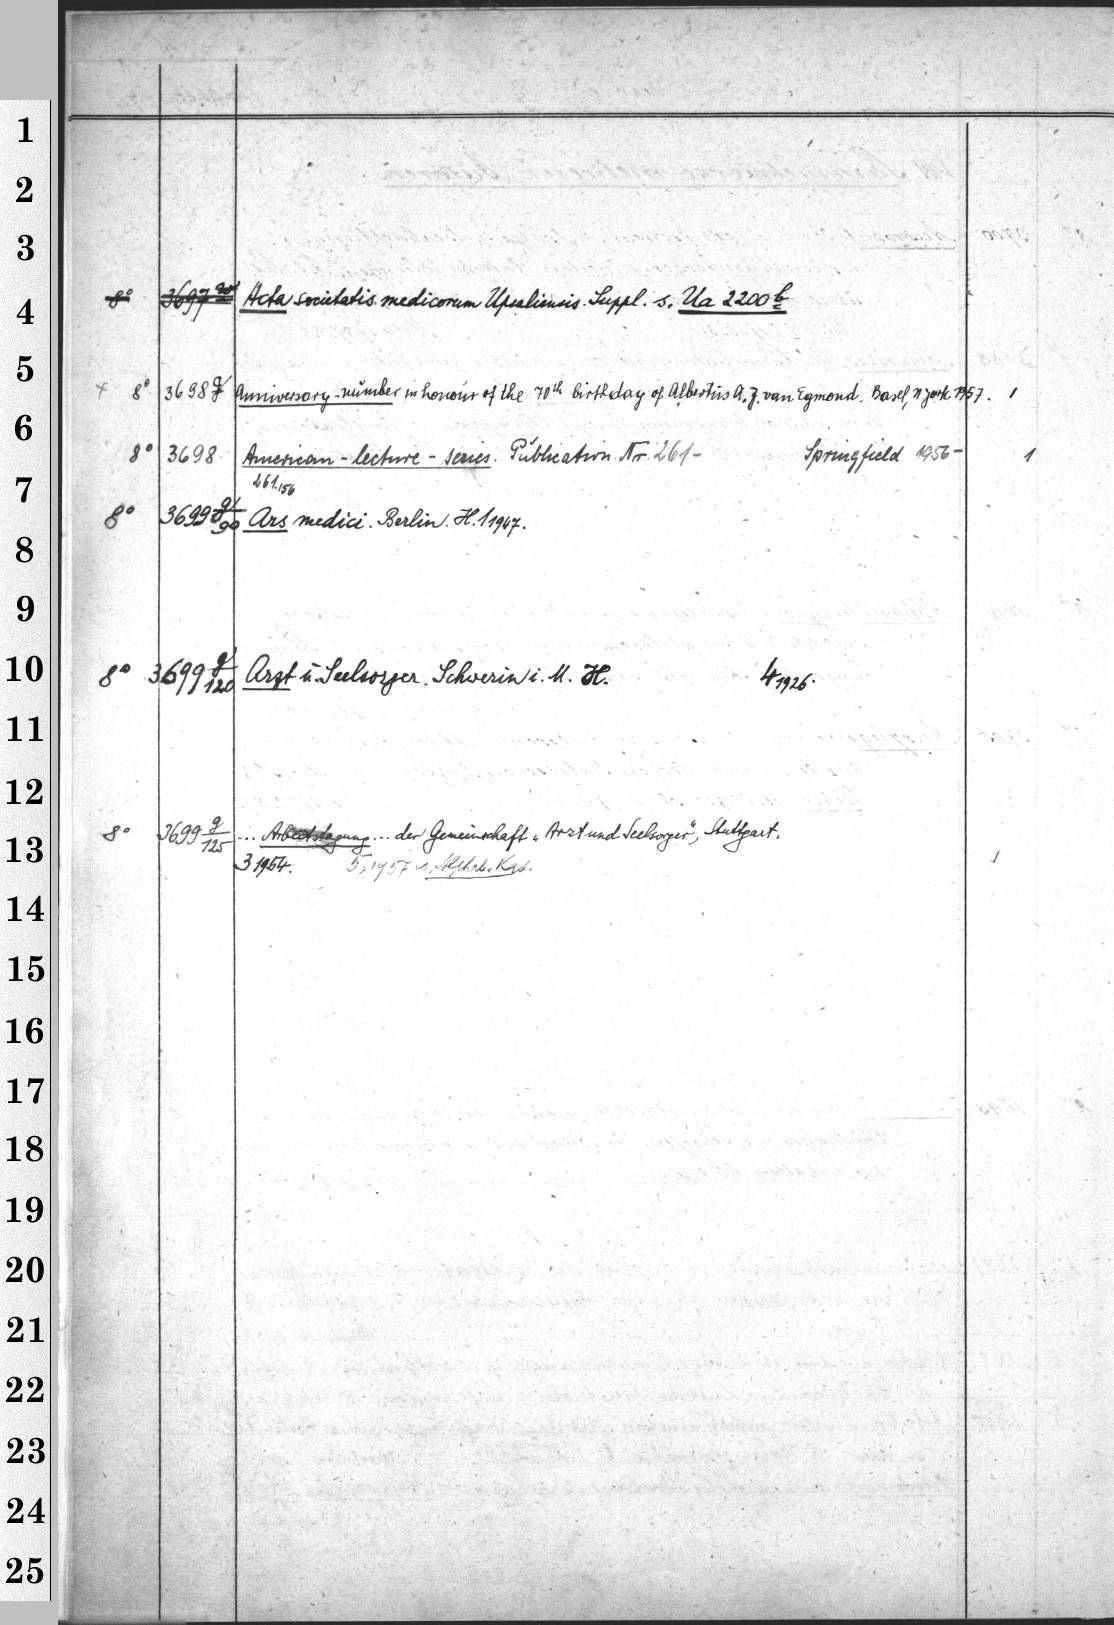 1
2
3
4
5
6
7
8
9
10
11
12
13
14
15
16
17
18
19
20
21
22
23
24
25
8° 3697 Acta societatis medicorum Upsaliensis. Suppl. s. Ua 2200 b
8° 3698 g Anniversary-number in honour of the 70th birthday of Albertus A. J. van Egmond. Basel, N York 1957. 1
8° 3698 American-lecture-series. Publication Nr. 261- Springfield 1956- 1
261.156
8° 3699 g/90 Ars medici. Berlin. H. 1 1947.
8° 3699 g/120 Arzt u. Seelsorger. Schwerin i. M. H. 4 1926.
8° 3699 g/125 ... Arbeitstagung ... der Gemeinschaft „Arzt und Seelsorger", Stuttgart.
3 1954. 5, 1957 s. Alphab. Kat. 1